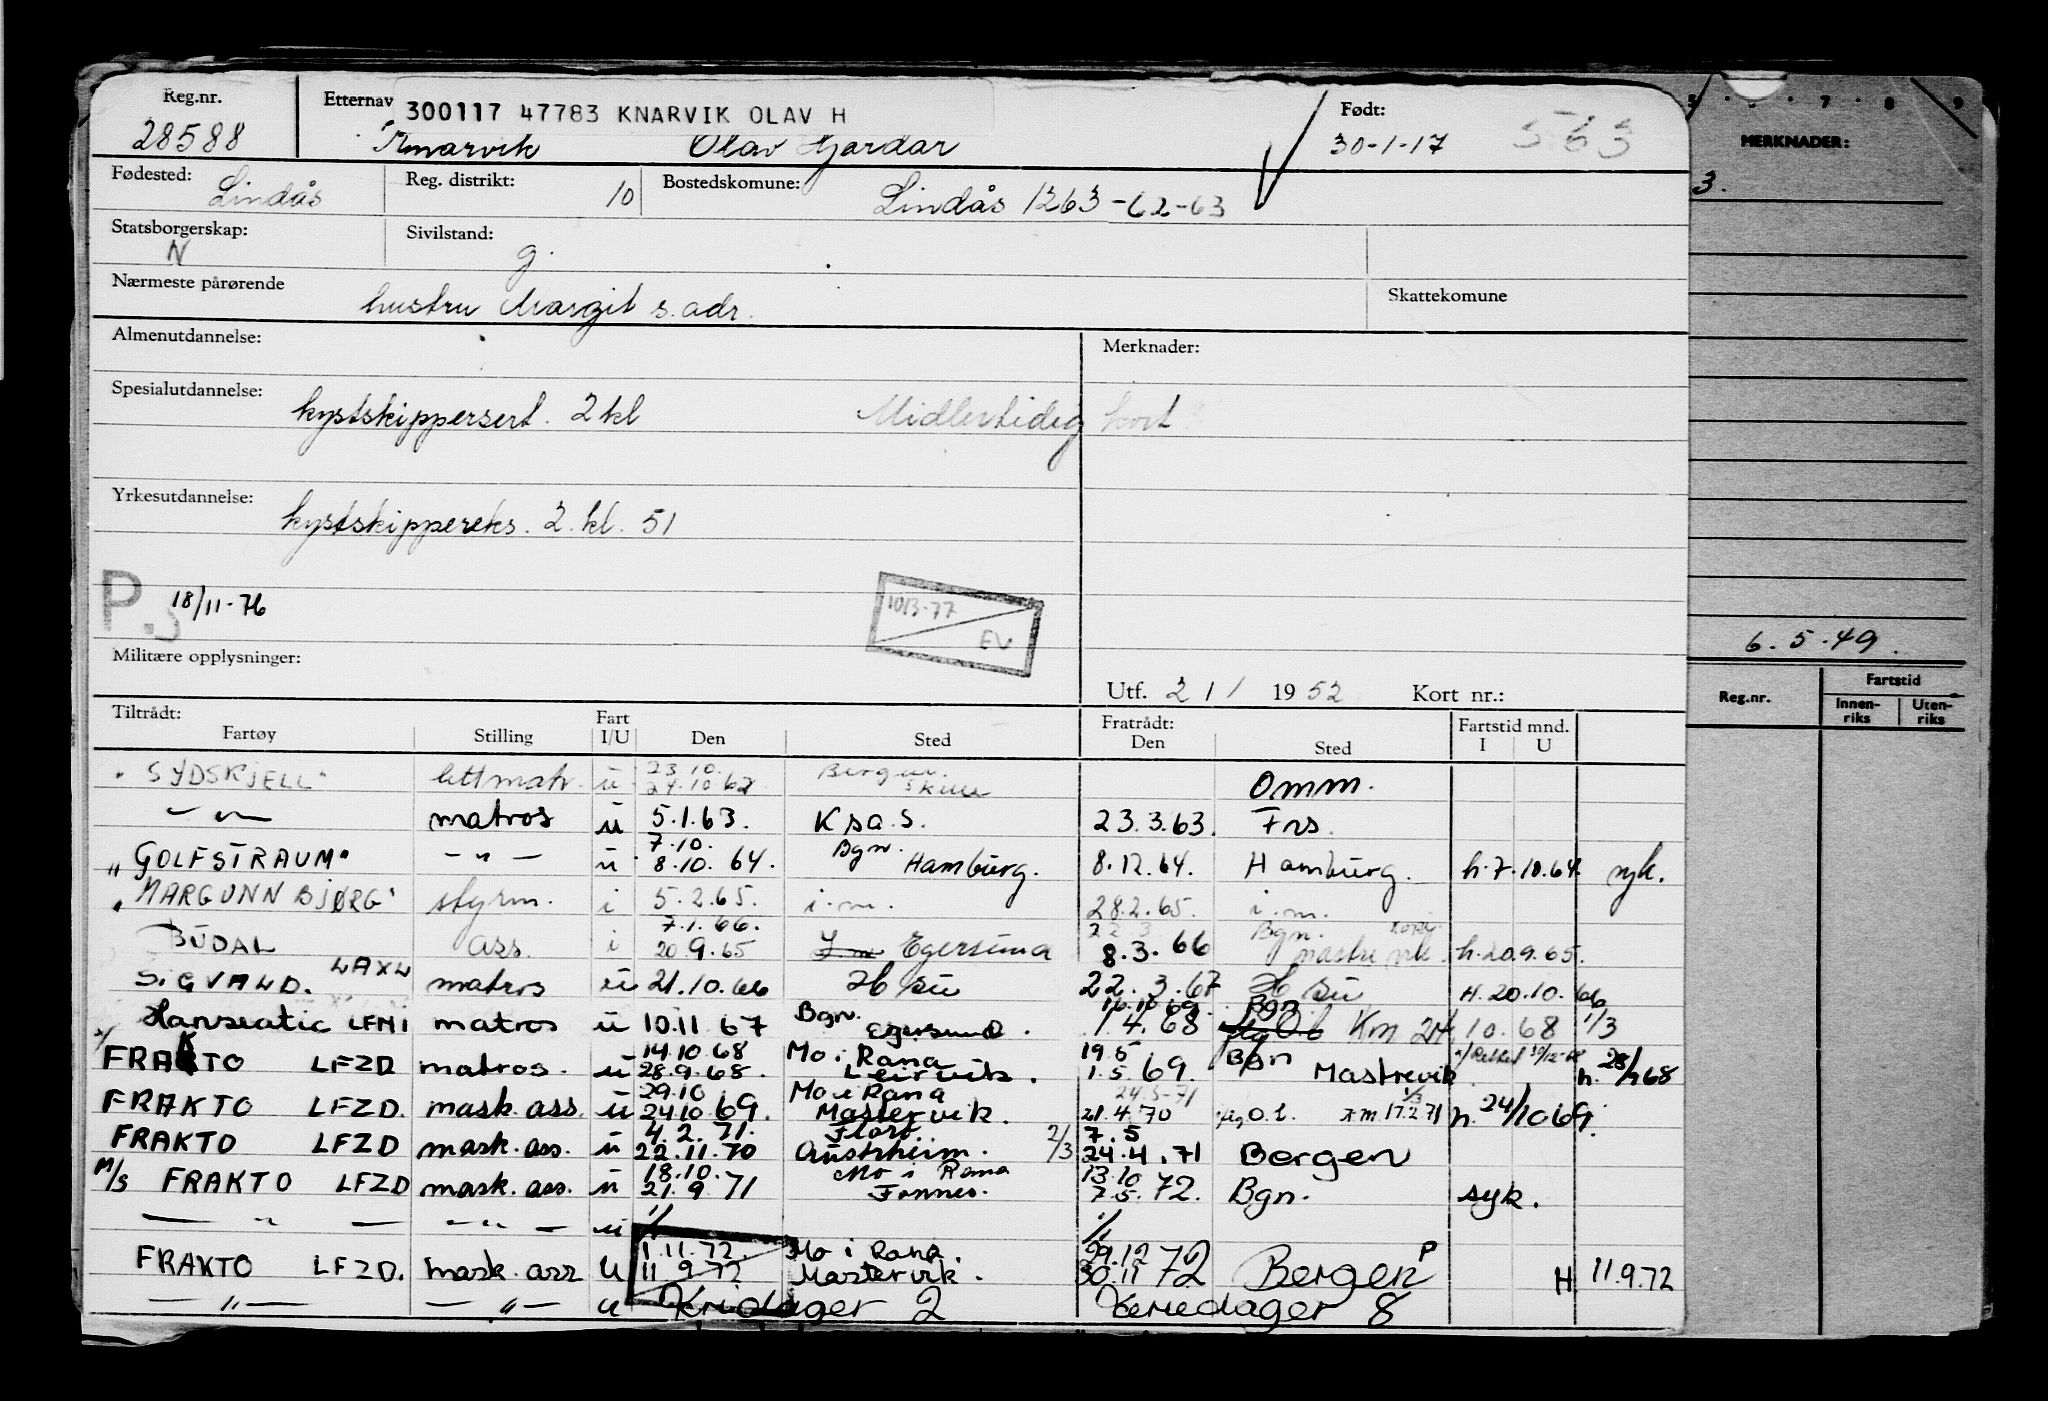 Reg.nr. Etternav 300117 47783 KNARVIK OLAV H Født:
28588 Knarvik Olav Gardar 30-1-17 563
MERKNADER:
Fødested: Lindås Reg. distrikt: 10 Bostedskomune: Lindås 1263-62-63
3.
Statsborgerskap: N Sivilstand: g.
Nærmeste pårørende hustru Margit s. adr. Skattekomune
Almenutdannelse: Merknader:
Spesialutdannelse: kystskippersert. 2 kl Midlertidig kort
Yrkesutdannelse: kystskippereks. 2. kl. 51
P. 18/11-76 1013-77 EV
Militære opplysninger: 6.5.49.
Utf. 2/1 1952 Kort nr.:
Reg.nr. Fartstid Innen-riks Uten-riks
Tiltrådt: Fart Fratrådt: Fartstid mnd.
Fartøy Stilling I/U Den Sted Den Sted I U
23.10. Bergen.
"SYDSKJELL" lettmatr. u 24.10.62 Omm.
— " — matros u 5.1.63. Ksa.S. 23.3.63. Frs.
7.10. Bgn.
"GOLFSTRAUM" — " — u 8.10.64. Hamburg. 8.12.64. Hamburg. h.7.10.64. syk.
"MARGUNN BJØRG" styrm. i 5.2.65. i.m. 28.2.65. i.m.
7.1.66. 22.3 Bgn.
BUDAL ass. i 20.9.65 Egersund 8.3.66 h.20.9.65.
SIGVALD. LAXW matros u 21.10.66 H su 22.3.67 H su H.20.10.66
Bgn. Bgn
Hanseatic LFMI matros u 10.11 67 Egersund. 1.4.68 Km 24/10.68 1/3
14.10 68 Mo i Rana 19.5 Bgn
FRAKTO LFZD matros. u 28.9.68. Leirvik. 1.5.69. Mastrevik h. 28/9 68
29.10 Mo i Rana 24.5-71 1/3
FRAKTO LFZD. mask. ass. u 24.10 69. Mastervik. 21.4.70 Km 17.2.71 h. 24/10 69.
4.2.71. Florø 2/3 7.5
FRAKTO LFZD mask. ass. u 22.11.70 Austrheim. 24.4.71 Bergen
18.10. Mo i Rana 13.10
M/S FRAKTO LFZD mask. ass. u 21.9 71 Fonnes. 7.5.72. Bgn. syk.
— " — — " — u 1/1 1/1
1.11.72. Mo i Rana. 29.12 P
FRAKTO LFZD. mask. ass u 11 9 72 Mastervik. 30.11 72 Bergen H 11.9.72
— " — — " — u Feridager 2 Feriedager 8